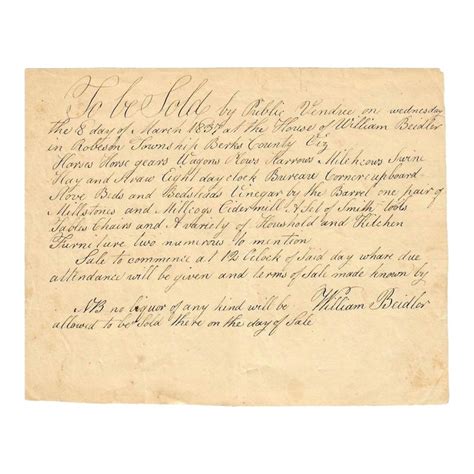 To be Sold by Public Vendue on wednesday
the 8 day of March 1837 at the House of William Beidler
in Robeson Township Berks County Viz
Horses Horse gears Wagons Plows Harrows Milchcows Swine
Hay and Straw Eight day clock Bureau Corner cupboard
Stove Beds and Bedsteads Vinegar by the Barrel one pair of
Millstones and Millcogs Cidermill A Set of Smith tools
Tables Chairs and A variety of Houshold and Kitchen
Furniture two numerous to mention
Sale to commence at 12 Oclock of Said day whare due
attendance will be given and terms of Sale made known by
NB no liquor of any kind will be William Beidler
allowed to be Sold there on the day of Sale